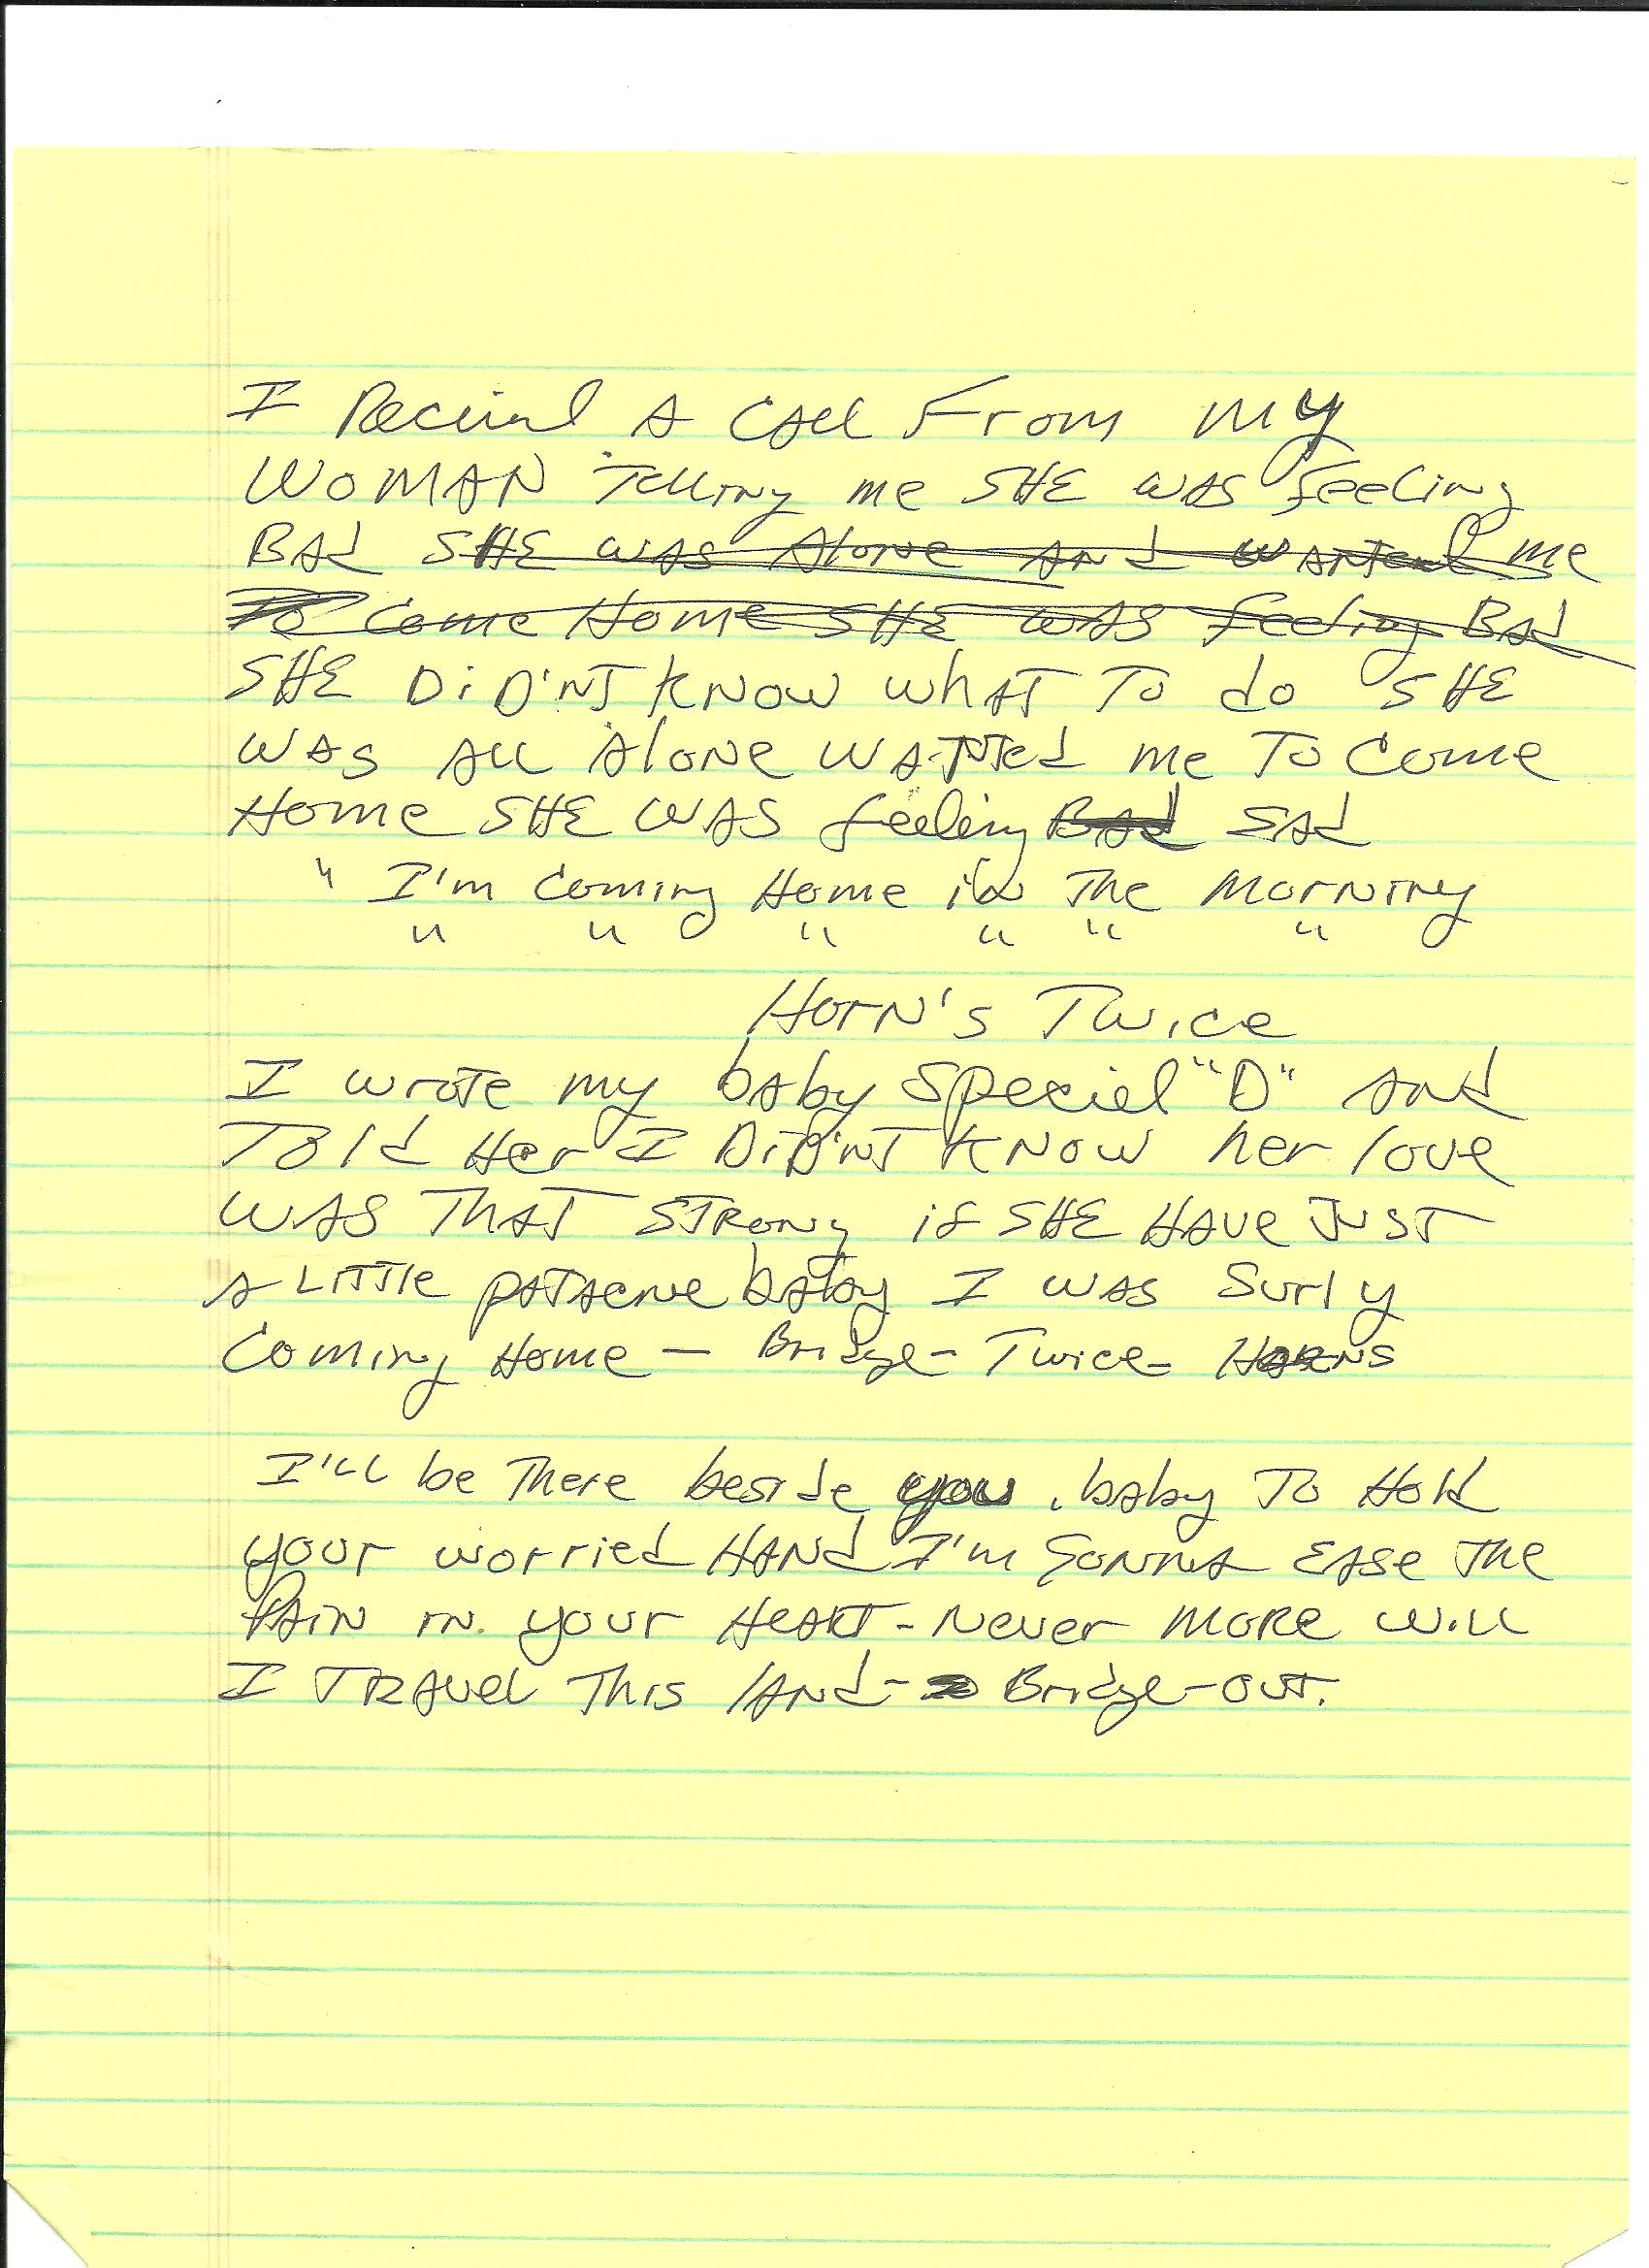 I Recieved A CAll From my
WOMAN Telling me SHE WAS feeling
BAd SHE WAS Alone ANd WANTed me
To Come Home SHE WAS feeling BAd
SHE DiD'NT KNOW WhAT To do SHE
WAS All Alone WANTed me To Come
Home SHE WAS feeling BAd SAd
" I'm Coming Home iN The MorNiNg
" " " " " "
HorN's Twice
I wroTe my bAby Speciel "D" ANd
Told Her I DiD'NT KNOW her love
WAS THAT STRong if SHE HAVe JUST
A LiTTle pATAcene bAby I WAS Surly
Coming Home — Bridge - Twice - HORNS
I'll be There beside you . bAby To Hold
your worried HANd I'm GonnA EAse The
PAiN iN your HeART - Never MoRe Will
I TRAvel This lANd - Bridge - out.